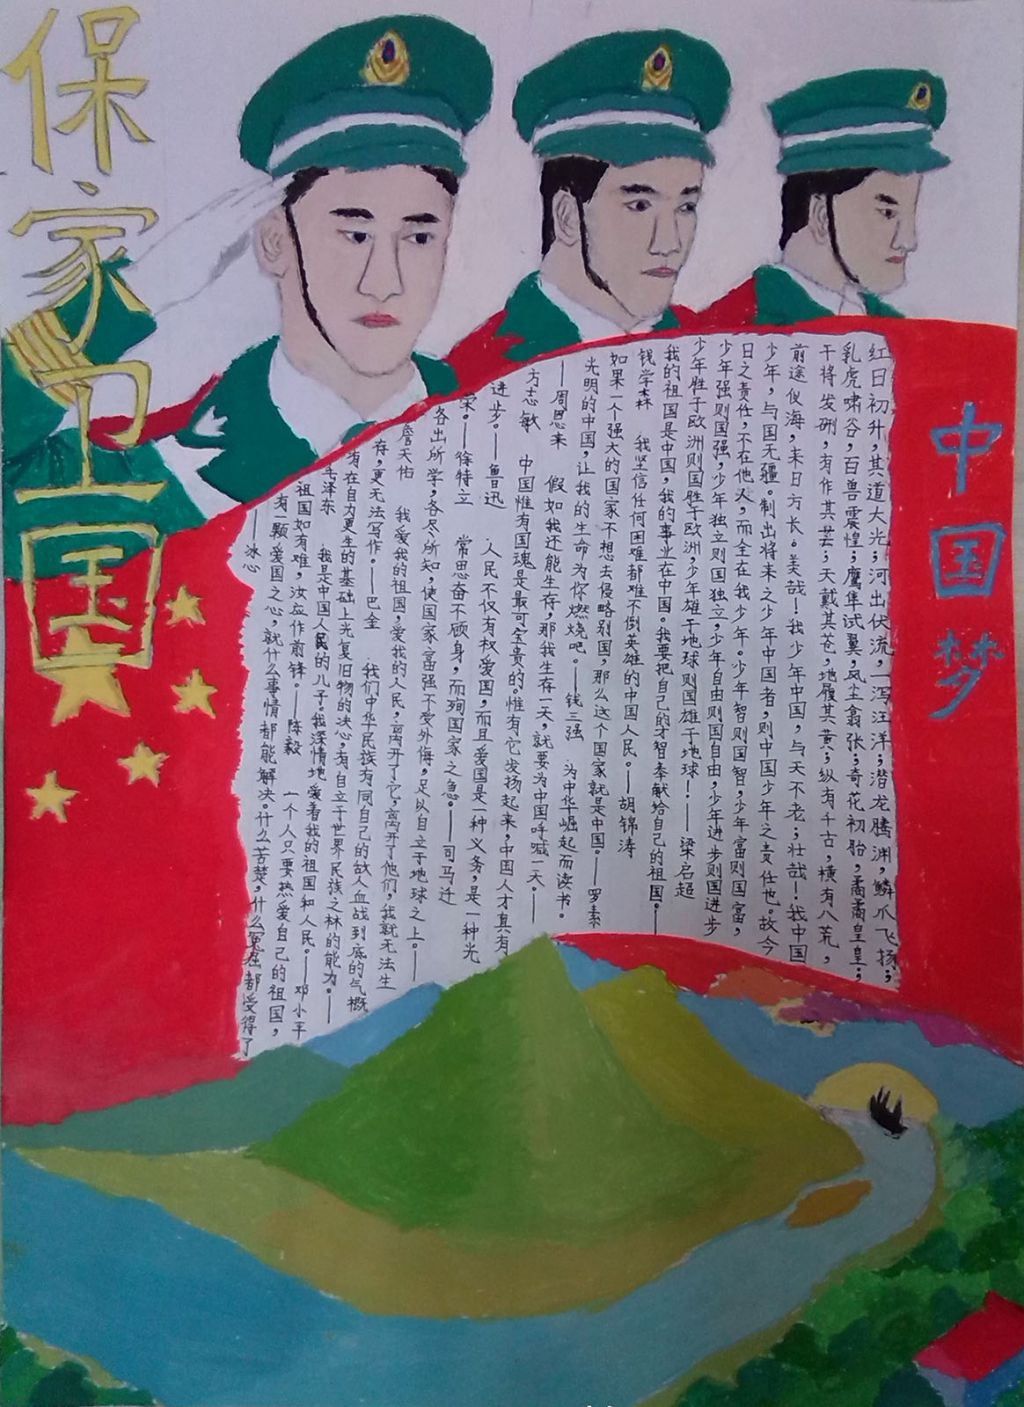 保家卫国
中国梦
红日初升，其道大光；河出伏流，一泻汪洋；潜龙腾渊，鳞爪飞扬；
乳虎啸谷，百兽震惶；鹰隼试翼，风尘翕张；奇花初胎，矞矞皇皇；
干将发硎，有作其芒；天戴其苍，地履其黄；纵有千古，横有八荒，
前途似海，来日方长。美哉！我少年中国，与天不老；壮哉！我中国
少年，与国无疆。制出将来之少年中国者，则中国少年之责任也。故今
日之责任，不在他人，而全在我少年。少年智则国智，少年富则国富，
少年强则国强，少年独立则国独立，少年自由则国自由，少年进步则国进步
少年胜于欧洲则国胜于欧洲，少年雄于地球则国雄于地球！——梁启超
我的祖国是中国，我的事业在中国。我要把自己的才智奉献给自己的祖国。——
钱学森 我坚信任何困难都难不倒英雄的中国人民。——胡锦涛
如果一个强大的国家不想去侵略别国，那么这个国家就是中国。——罗素
光明的中国，让我的生命为你燃烧吧。——钱三强 为中华崛起而读书。
——周恩来 假如我还能生存，那我生存一天，就要为中国呼喊一天。——
方志敏 中国惟有国魂是最可宝贵的。惟有它发扬起来，中国人才真有
进步。——鲁迅 人民不仅有权爱国，而且爱国是一种义务，是一种光
荣。——徐特立 常思奋不顾身，而殉国家之急。——司马迁
各出所学，各尽所知，使国家富强不受外侮，足以自立于地球之上。——
詹天佑 我爱我的祖国，爱我的人民，离开了它，离开了他们，我就无法生
存，更无法写作。——巴金 我们中华民族有同自己的敌人血战到底的气概
有在自力更生的基础上光复旧物的决心，有自立于世界民族之林的能力。——
毛泽东 我是中国人民的儿子。我深情地爱着我的祖国和人民。——邓小平
祖国如有难，汝应作前锋。——陈毅 一个人只要热爱自己的祖国，
有一颗爱国之心，就什么事情都能解决。什么苦楚，什么冤屈都受得了
——冰心